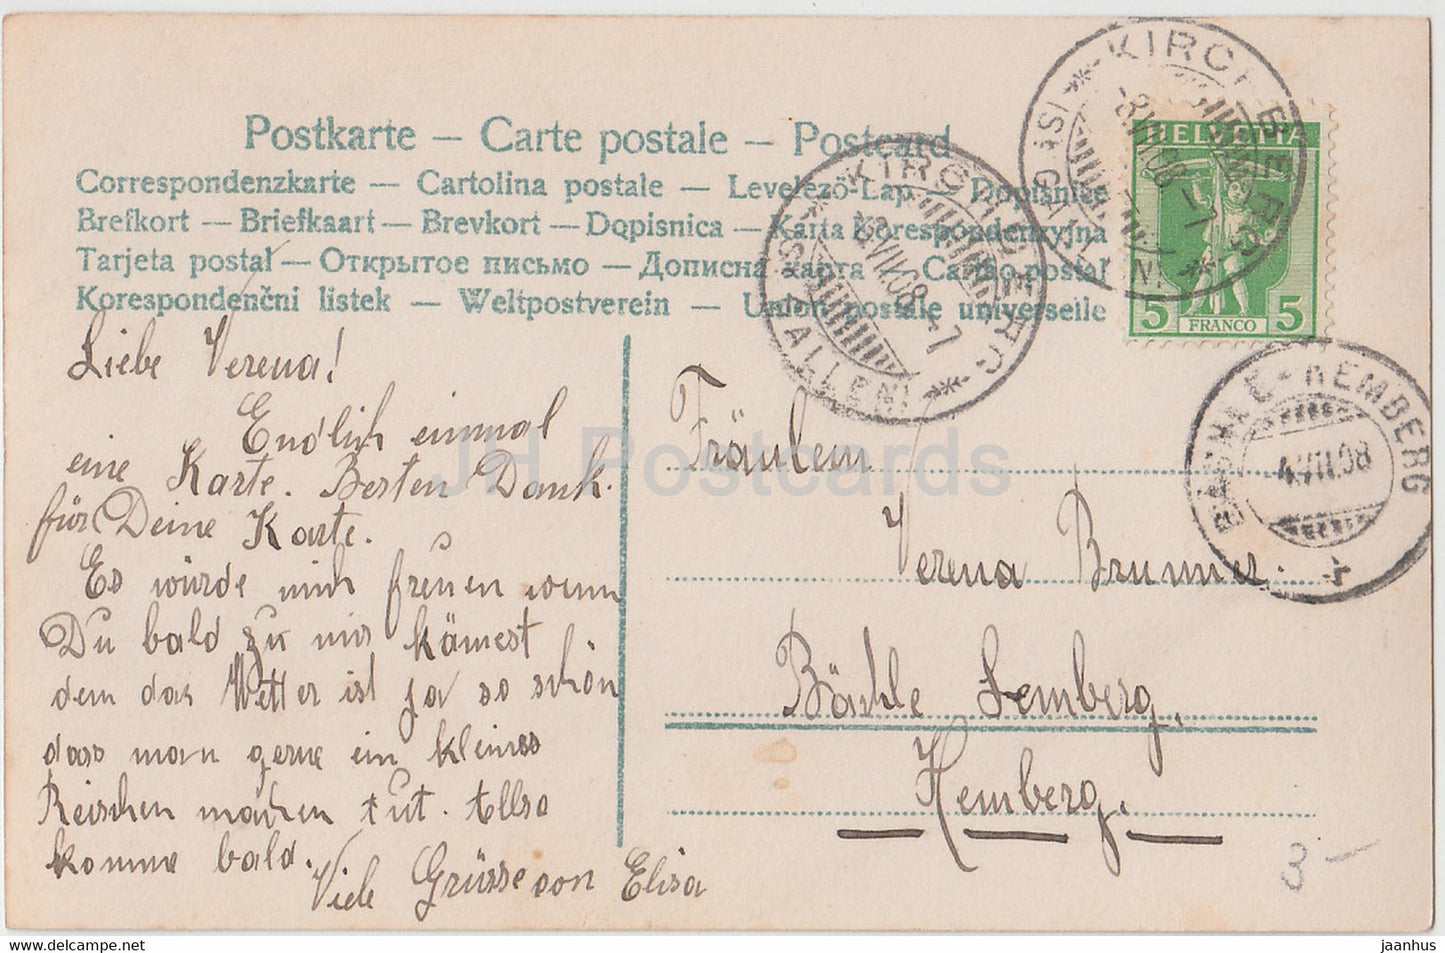 Postkarte – Carte postale – Postcard
Correspondenzkarte – Cartolina postale – Levelező-Lap – Dopisnice
Brefkort – Briefkaart – Brevkort – Dopisnica – Karta Korespondencyjna
Tarjeta postal – Открытое письмо – Дописна карта – Cartão postal
Korespondenční listek – Weltpostverein – Union postale universelle
KIRCHBERG (ST. GALLEN)
-3.VII.08.-7
KIRCHBERG (ST. GALLEN)
-3.VII.08.-7
HELVETIA
5 FRANCO 5
BÄCHLE-HEMBERG
4.VII.08
Liebe Verena!
Endlich einmal
eine Karte. Besten Dank.
für Deine Karte.
Es würde mich freuen wenn
Du bald zu mir kämest
denn das Wetter ist ja so schön
dass man gerne ein kleines
Reischen machen tut. Also
komme bald.
Viele Grüsse von Elisa
Fräulein
Verena Brunner.
Bächle Hemberg.
Hemberg.
3 –
JH Postcards
HipPostcard.com
jaanhus